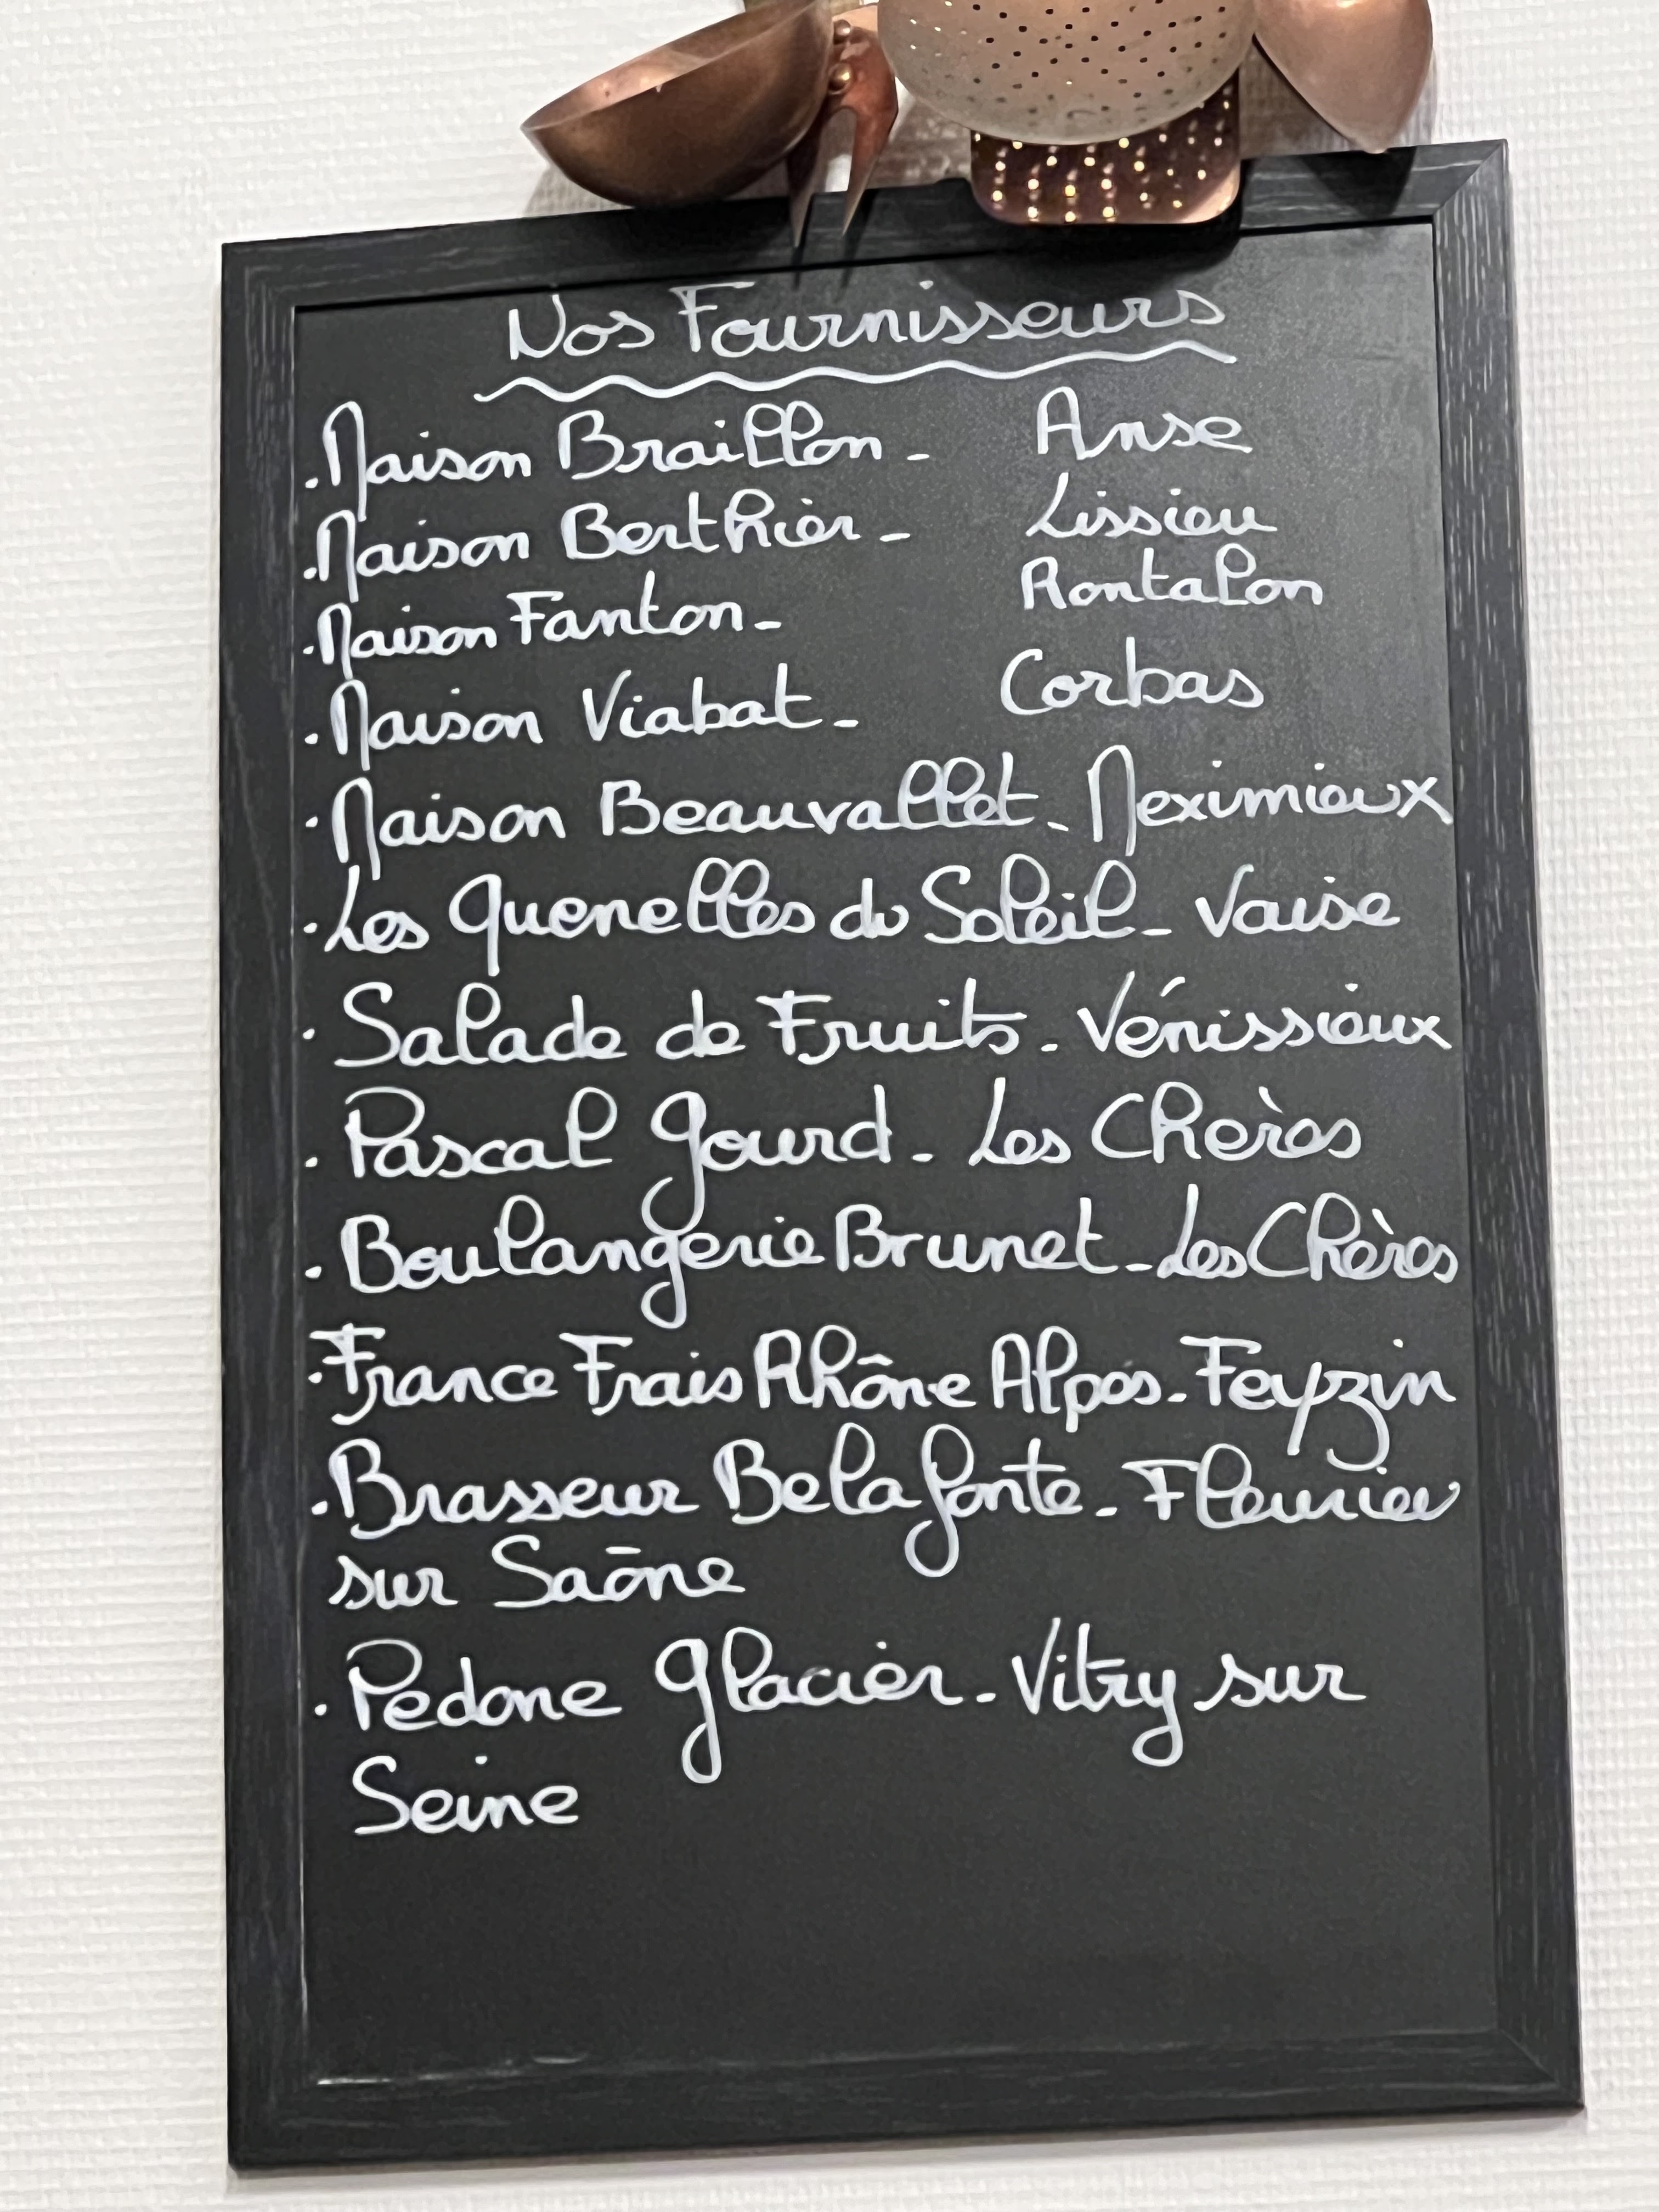 Nos Fournisseurs
.Maison Braillon - Anse
.Maison Berthier - Lissieu
.Maison Fanton - Rontalon
.Maison Viabat - Corbas
.Maison Beauvallet - Meximieux
.Les Quenelles du Soleil - Vaise
.Salade de Fruits - Vénissieux
.Pascal Gourd - Les Chères
.Boulangerie Brunet - Les Chères
.France Frais Rhône Alpes - Feyzin
.Brasseur Belafonte - Fleuriev
sur Saône
.Pedone Glacier - Vitry sur
Seine